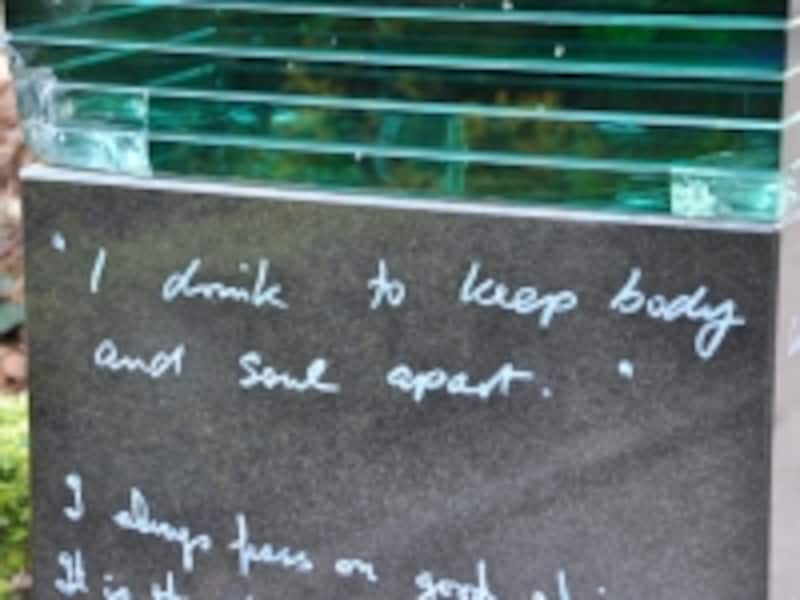 "I drink to keep body
and soul apart."
I always pass on good
It is the